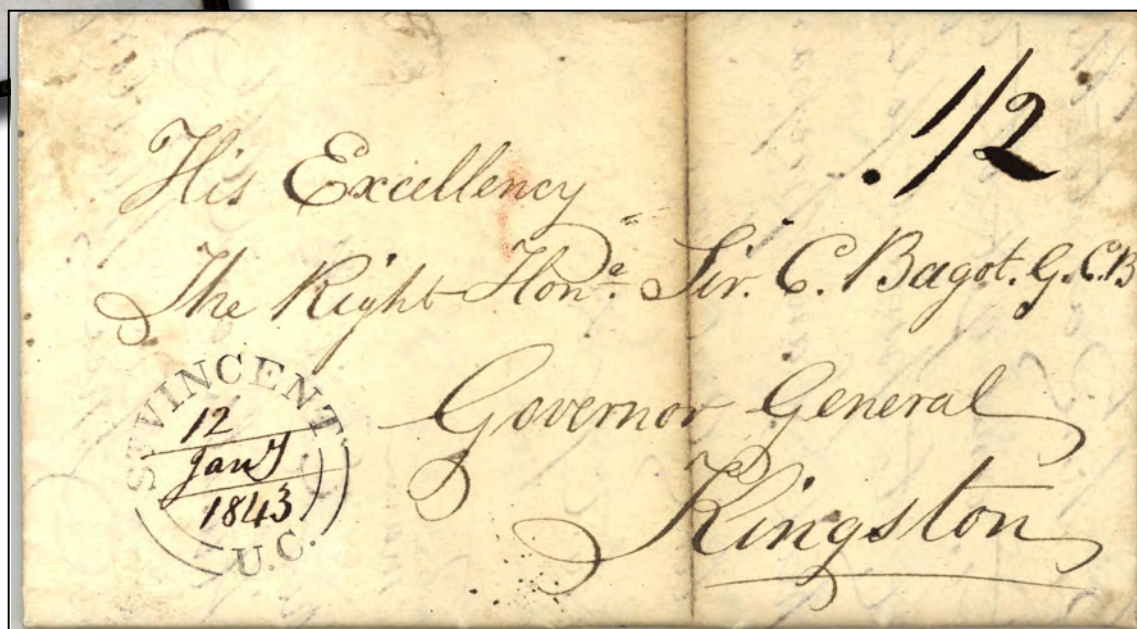 1/2
His Excellency
The Right Hon.e Sir. C. Bagot. G.C.B
Governor General
Kingston
St VINCENT.
12
Jany
1843
U.C.